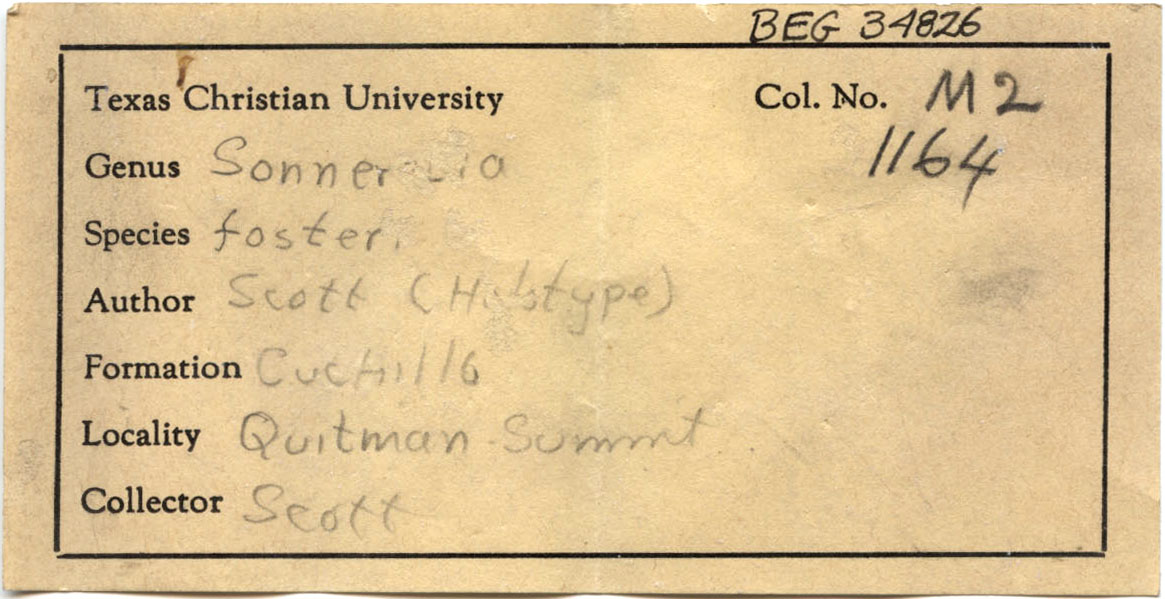 BEG 34826
Texas Christian University Col. No. M2
1164
Genus
Species fosteri
Author Scott (Holotype)
Formation Cuchillo
Locality Quitman Summit
Collector Scott